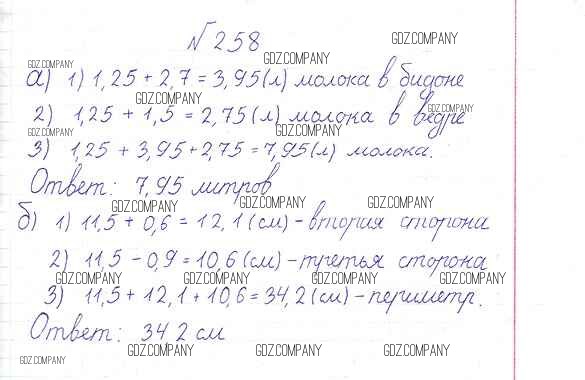 № 258
GDZ.COMPANY
GDZ.COMPANY
GDZ.COMPANY
а) 1) 1,25 + 2,7 = 3,95 (л) молока в бидоне
GDZ.COMPANY
GDZ.COMPANY
2) 1,25 + 1,5 = 2,75 (л) молока в ведре
GDZ.COMPANY
GDZ.COMPANY
3) 1,25 + 3,95 + 2,75 = 7,95 (л) молока.
Ответ: 7,95 литров
GDZ.COMPANY GDZ.COMPANY GDZ.COMPANY
б) 1) 11,5 + 0,6 = 12,1 (см) - вторая сторона
2) 11,5 - 0,9 = 10,6 (см) - третья сторона
GDZ.COMPANY GDZ.COMPANY GDZ.COMPANY GDZ.COMPANY
3) 11,5 + 12,1 + 10,6 = 34,2 (см) - периметр.
Ответ: 34 2 см
GDZ.COMPANY GDZ.COMPANY GDZ.COMPANY GDZ.COMPANY